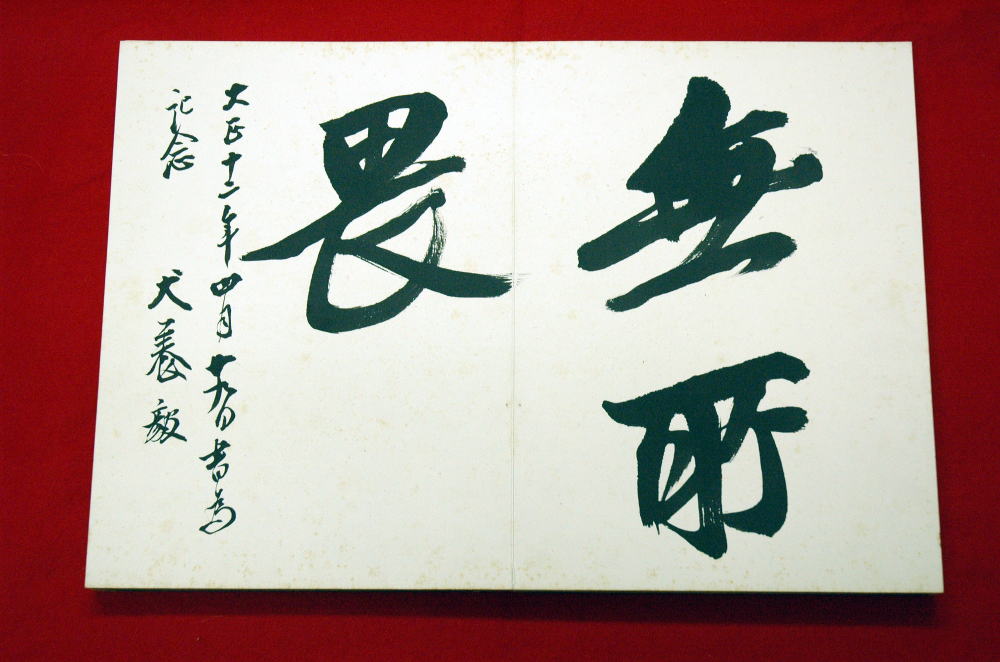 無所
畏
大正十二年四月十九日書為
記念
犬養毅